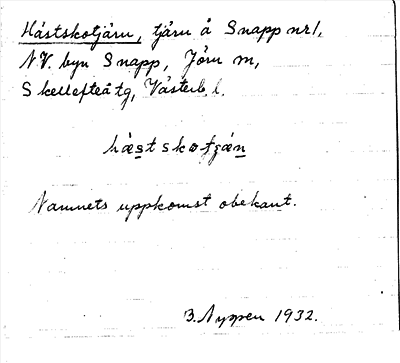 Hästskotjärn, tjärn å Snapp nr 1,
NV. byn Snapp, Jörn m,
Skellefteå tg, Västerb. l.
hästskotjän
Namnets uppkomst obekant.
B. Nyppen 1932.